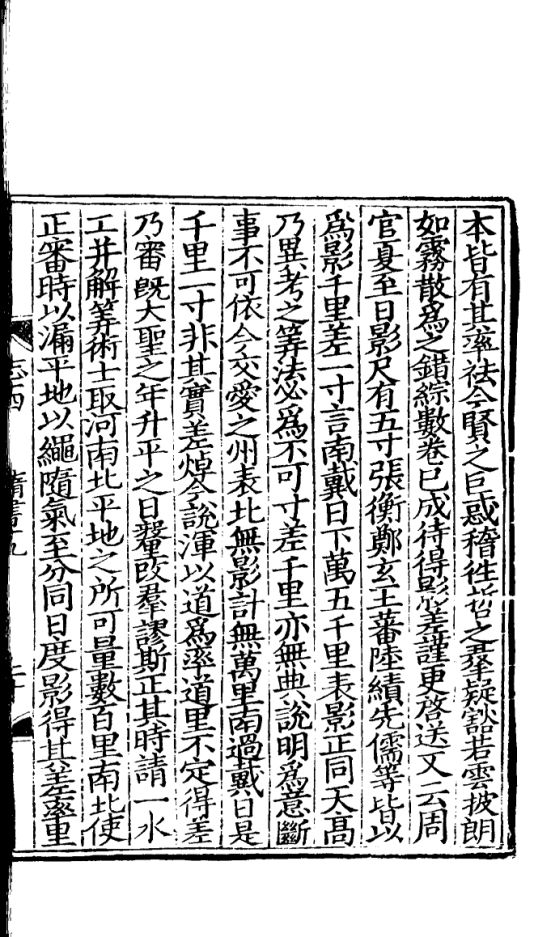 本皆有其率祛今賢之巨惑稽徃哲之羣疑豁若雲披朗
如霧散爲之錯綜數卷已成待得影差謹更啓送又云周
官夏至日影尺有五寸張衡鄭玄王蕃陸績先儒等皆以
爲影千里差一寸言南戴日下萬五千里表影正同天髙
乃異考之筭法必爲不可寸差千里亦無典說明爲意斷
事不可依今交愛之州表北無影計無萬里南過戴日是
千里一寸非其實差焯今說渾以道爲率道里不定得差
乃審旣大聖之年升平之日釐改羣謬斯正其時請一水
工并解筭術士取河南北平地之所可量數百里南北使
正審時以漏平地以繩隨氣至分同日度影得其差率里
志四 隋書九